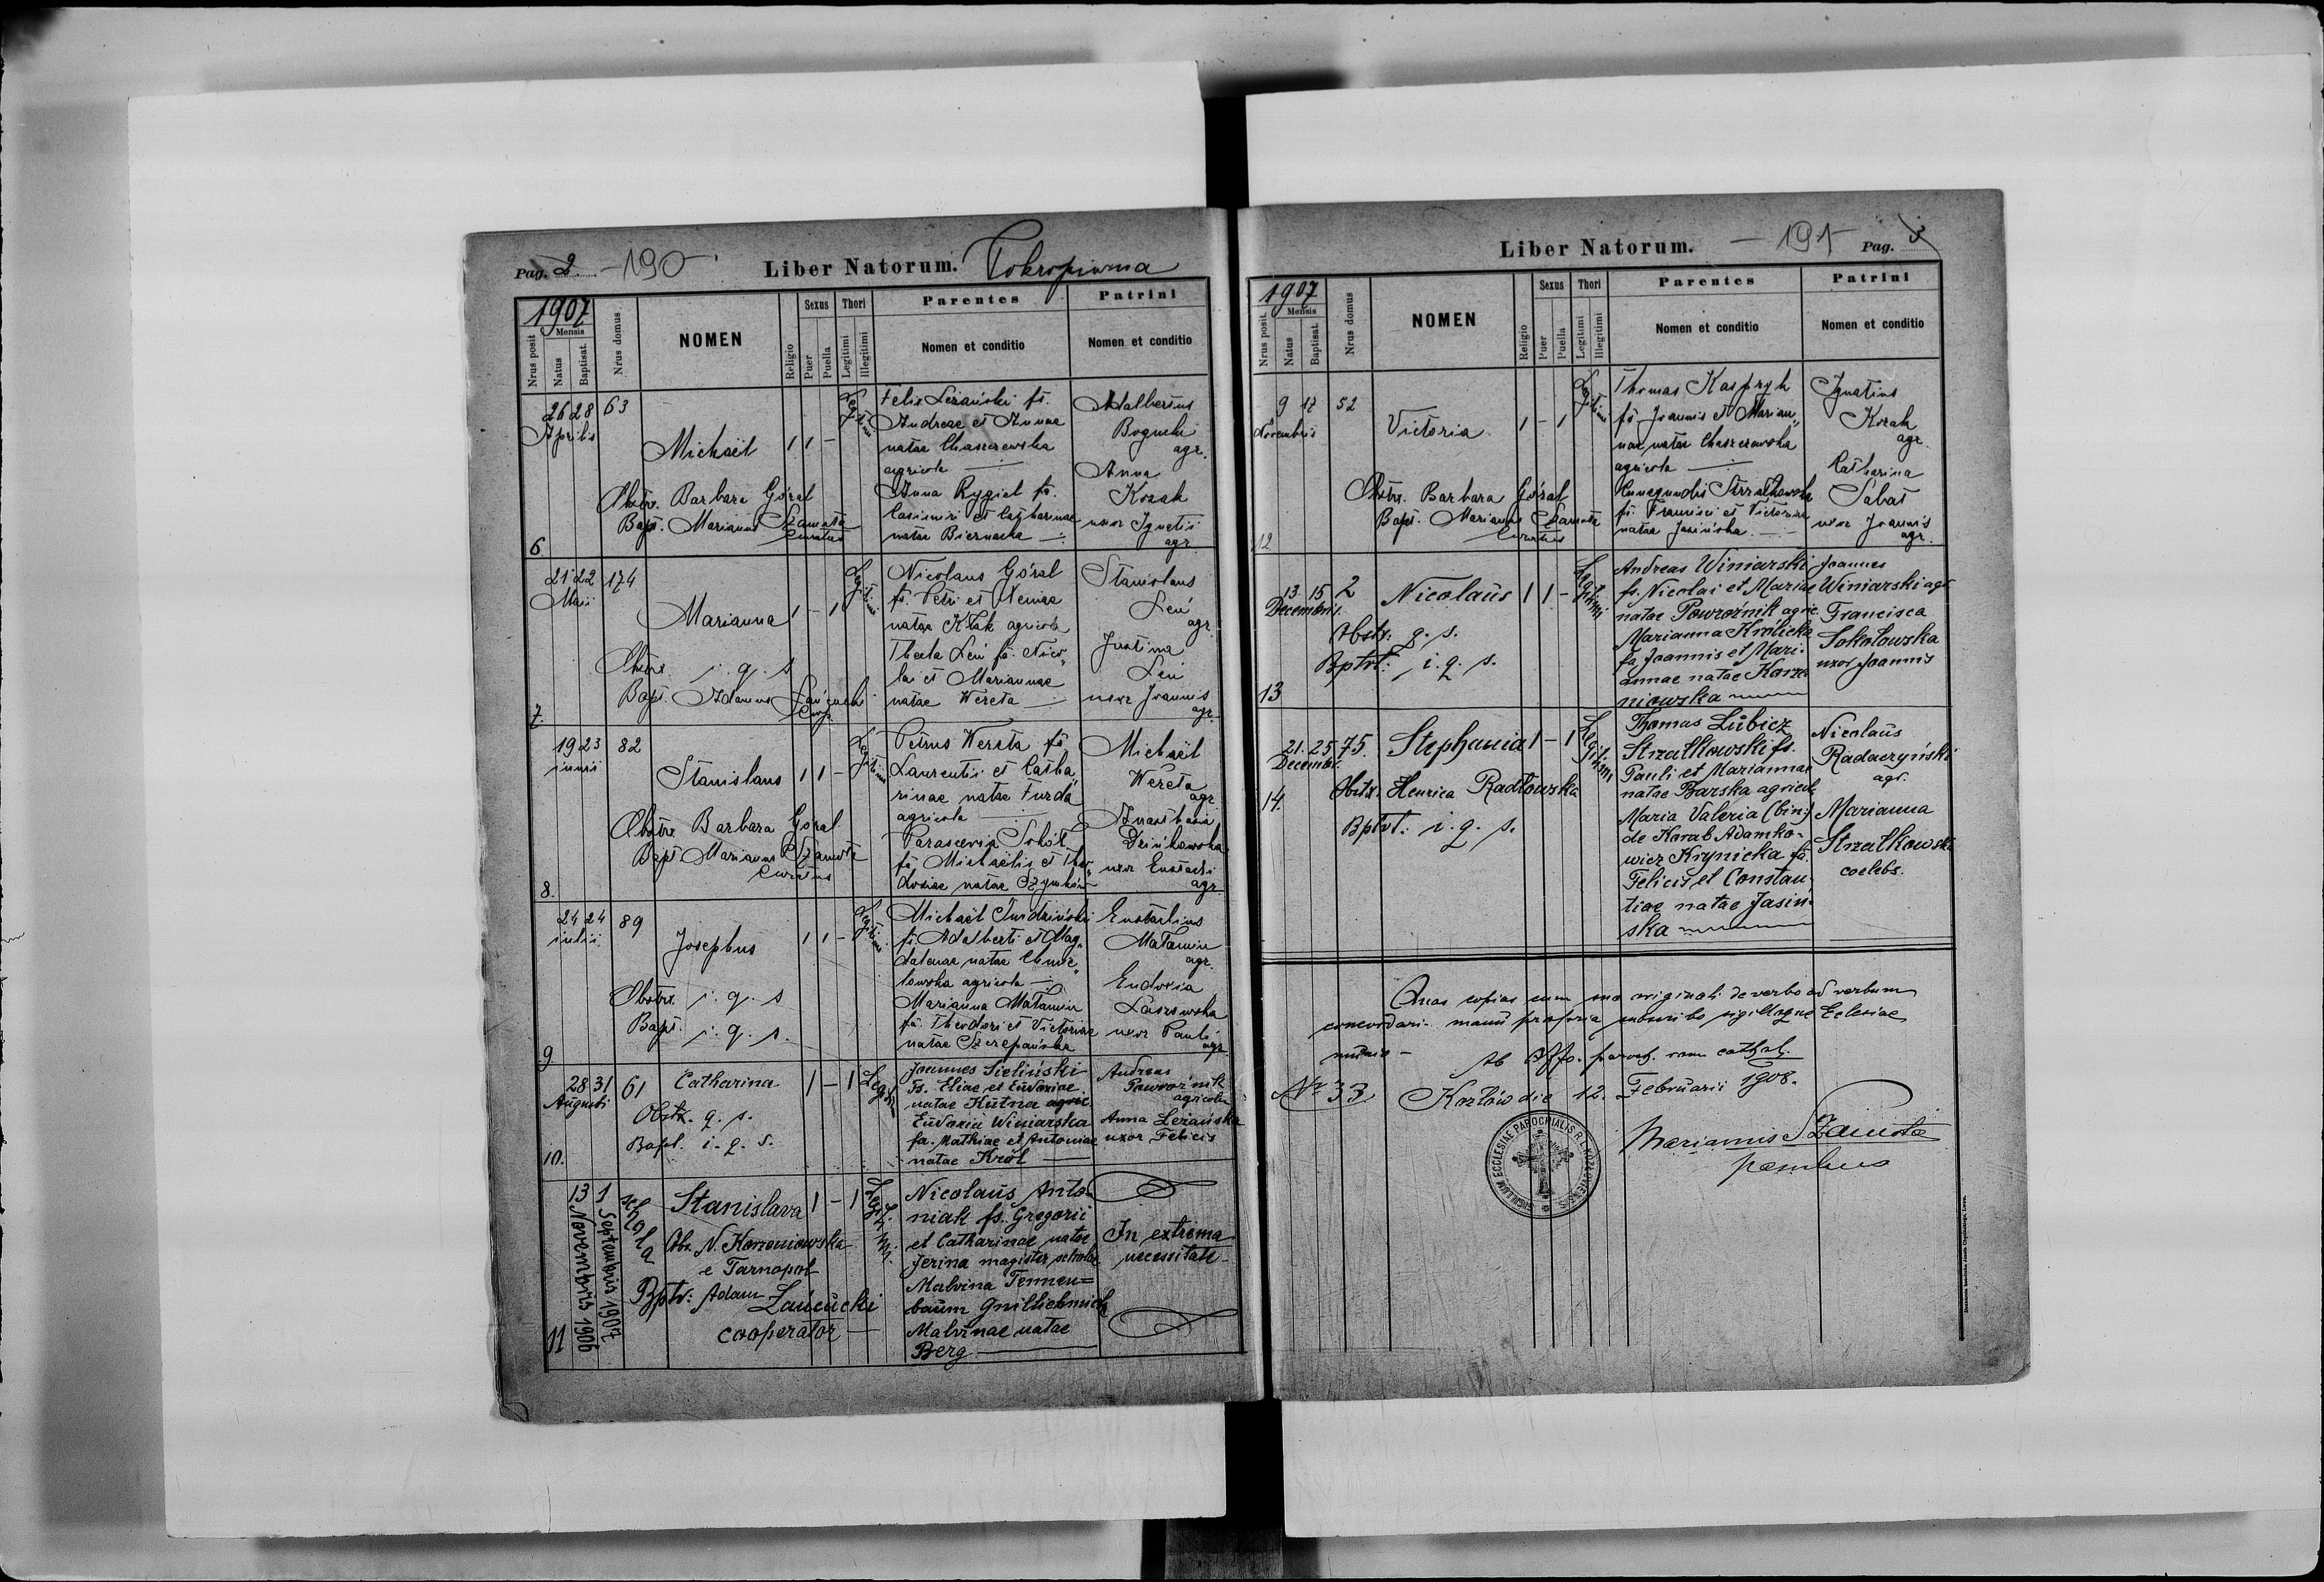 Pag. 2. -190- Liber Natorum. Pokropiwna
1907
Nrus posit.
Mensis
Natus
Baptisat.
Nrus domus
NOMEN
Religio
Sexus
Puer
Puella
Thori
Legitimi
Illegitimi
Parentes
Nomen et conditio
Patrini
Nomen et conditio
6
26 28
Aprilis
63
Michaël
1 1 -
Legitimi
Obstr. Barbara Góral
Bapt. Marianus Szamota
Curatus
Felix Leżański fs.
Andreae et Annae
natae Chaszczewska
agricola
Anna Rygiel fa.
Casimiri et Catharinae
natae Biernacka
Adalbertus
Bogucki
agr.
Anna
Kozak
uxor Ignatii
agr.
7.
21 22
Maii
174
Marianna
1 - 1
Legitimi
Obstr. i. q. s
Bapt. Adamus Łańcucki
Coop.
Nicolaus Góral
fs. Petri et Xeniae
natae Kłak agricola
Thecla Leń fa. Nico„
lai et Mariannae
natae Wereta
Stanislaus
Leń
agr.
Justina
Leń
uxor Joannis
agr.
8.
19 23
iunii
82
Stanislaus
1 1 -
Legitimi
Obstr. Barbara Góral
Bapt. Marianus Szamota
Curatus
Petrus Wereta fs
Laurentii et Catha„
rinae natae Furda
agricola
Parascevia Sokół
fa. Michaëlis et Theo„
dosiae natae Szymków
Michaël
Wereta
agr.
Anasthasia
Dzińkowska
uxor Eustachi
agr.
9.
24 24
iulii
89
Josephus
1 1 -
Legitimi
Obstr. i. q. s
Bapt. i. q. s.
Michaël Śmidziński
fs. Adalberti et Mag„
dalenae natae Chmie„
lowska agricola
Marianna Matanin
fa. Theodori et Victoriae
natae Szczepańska
Eustachius
Matanin
agr.
Eudoxia
Laszowska
uxor Pauli
agr.
10.
28 31
Augusti
61
Catharina
1 - 1
Legitimi
Obstr. q. s.
Bapt. i. q. s.
Joannes Sieliński
fs. Eliae et Eudoxiae
natae Kutna agric.
Eudoxia Winiarska
fa. Mathiae et Antoniae
natae Król
Andreas
Powroźnik
agricola
Anna Leżańska
uxor Felicis
11
13 Novembris 1906
1 Septembris 1907
schola
Stanislava
1 - 1
Legitimi.
Obs. N. Korzeniowska
e Tarnopol
Bptv: Adam Łańcucki
cooperator
Nicolaus Anto
niak fs. Gregorii
et Catharinae natae
Jerina magister scholae
Malvina Tennen=
baum
Malvinae natae
Berg
In extrema
necessitate
Liber Natorum. - 191 - Pag. 3
1907
Nrus posit.
Mensis
Natus
Baptisat.
Nrus domus
NOMEN
Religio
Sexus
Puer
Puella
Thori
Legitimi
Illegitimi
Parentes
Nomen et conditio
Patrini
Nomen et conditio
12
9 12
Novembris
52
Victoria
1 - 1
Legitimi
Obstr. Barbara Góral
Bapt. Marianus Szamota
Curatus
Thomas Kasprzyk
fs. Joannis et Marian„
nae natae Chaszczewska
agricola
Cunegundis Strzałkowska
fa. Francisci et Victoriae
natae Jasińska
Ignatius
Kozak
agr.
Catharina
Sabat
uxor Joannis
agr.
13
13 15
Decembris.
2
Nicolaus
1 1 -
Legitimi
Obstr. q. s.
Bptvt: i. q. s.
Andreas Winiarski
fs. Nicolai et Mariae
natae Powroźnik agric.
Marianna Krolicka
fa Joannis et Mari-
annae natae Korze
niowska
Joannes
Winiarski agr.
Francisca
Sokołowska
uxor Joannis
14.
21. 25
Decembr.
75.
Stephania
1 - 1
Legitimi
Obstr. Henrica Radłowska
Bptvt: i. q. s.
Thomas Lubicz
Strzałkowski fs.
Pauli et Mariannae
natae Barska agricola
Maria Valeria (bin:)
de Korab Adamko-
wicz Krynicka fa.
Felicis et Constan-
tiae natae Jasiń-
ska
Nicolaus
Radaczyński
agr.
Marianna
Strzałkowska
coelebs.
Quas copias cum suo originali de verbo ad verbum
concordari manu propria subscribo sigilloque Eclesiae
munio -
Ab Offo. paroch. rom cathol.
No 33 Kozłów die 12. Februarii 1908.
Marianus Szamota
parochus
SIGILLUM ECCLESIAE PAROCHIALIS R. L. KOZŁOVIENSIS